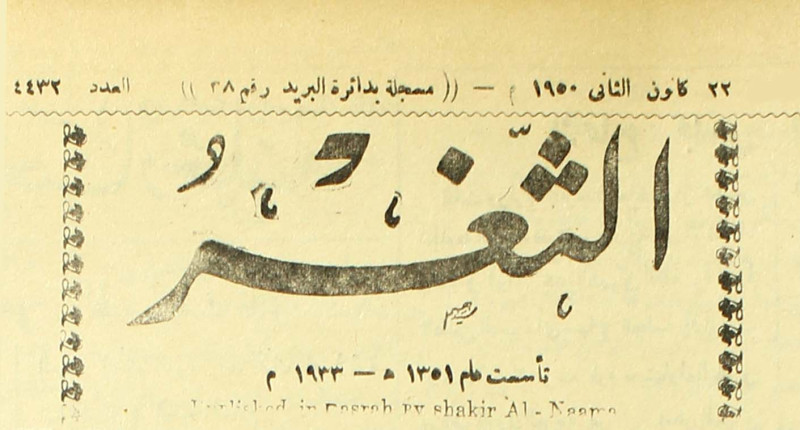 ٢٢ كانون الثاني ١٩٥٠ م — (( مسجلة بدائرة البريد رقم ٣٨ )) العدد ٤٤٣٢
الثَّغْرُ
تأسست عام ١٣٥١ ه — ١٩٣٣ م
Published in Basrah By shakir Al - Naama